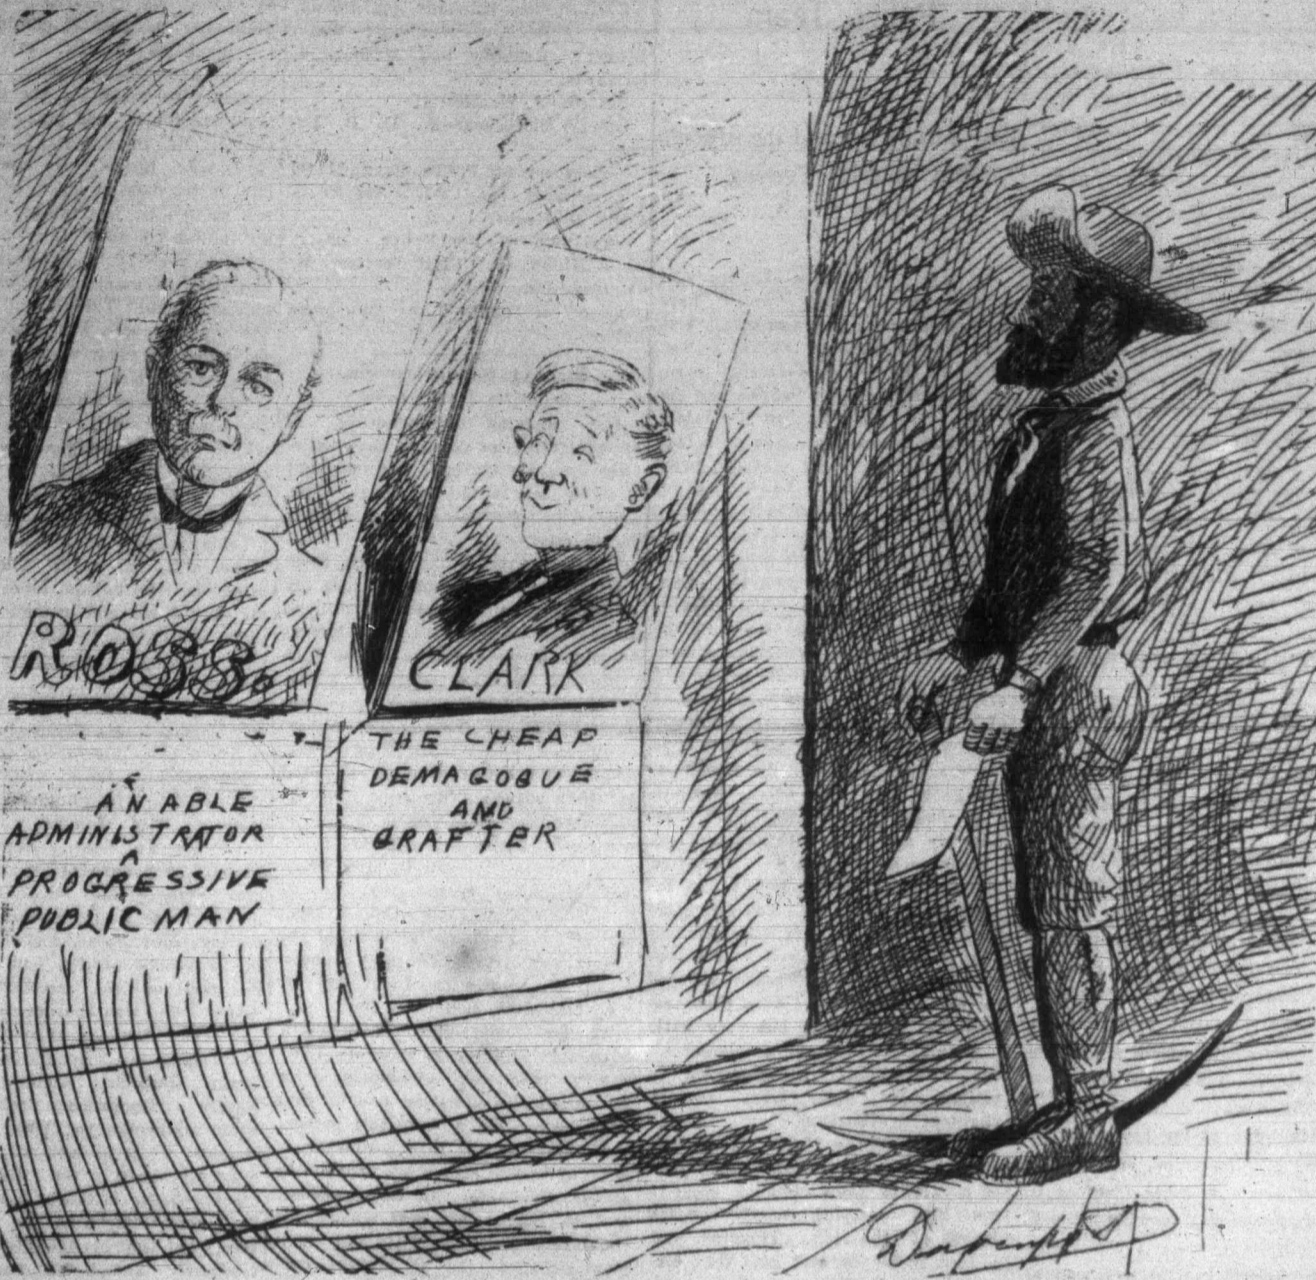 ROSS.
AN ABLE
ADMINISTRATOR
A
PROGRESSIVE
PUBLIC MAN
CLARK
THE CHEAP
DEMAGOGUE
AND
GRAFTER